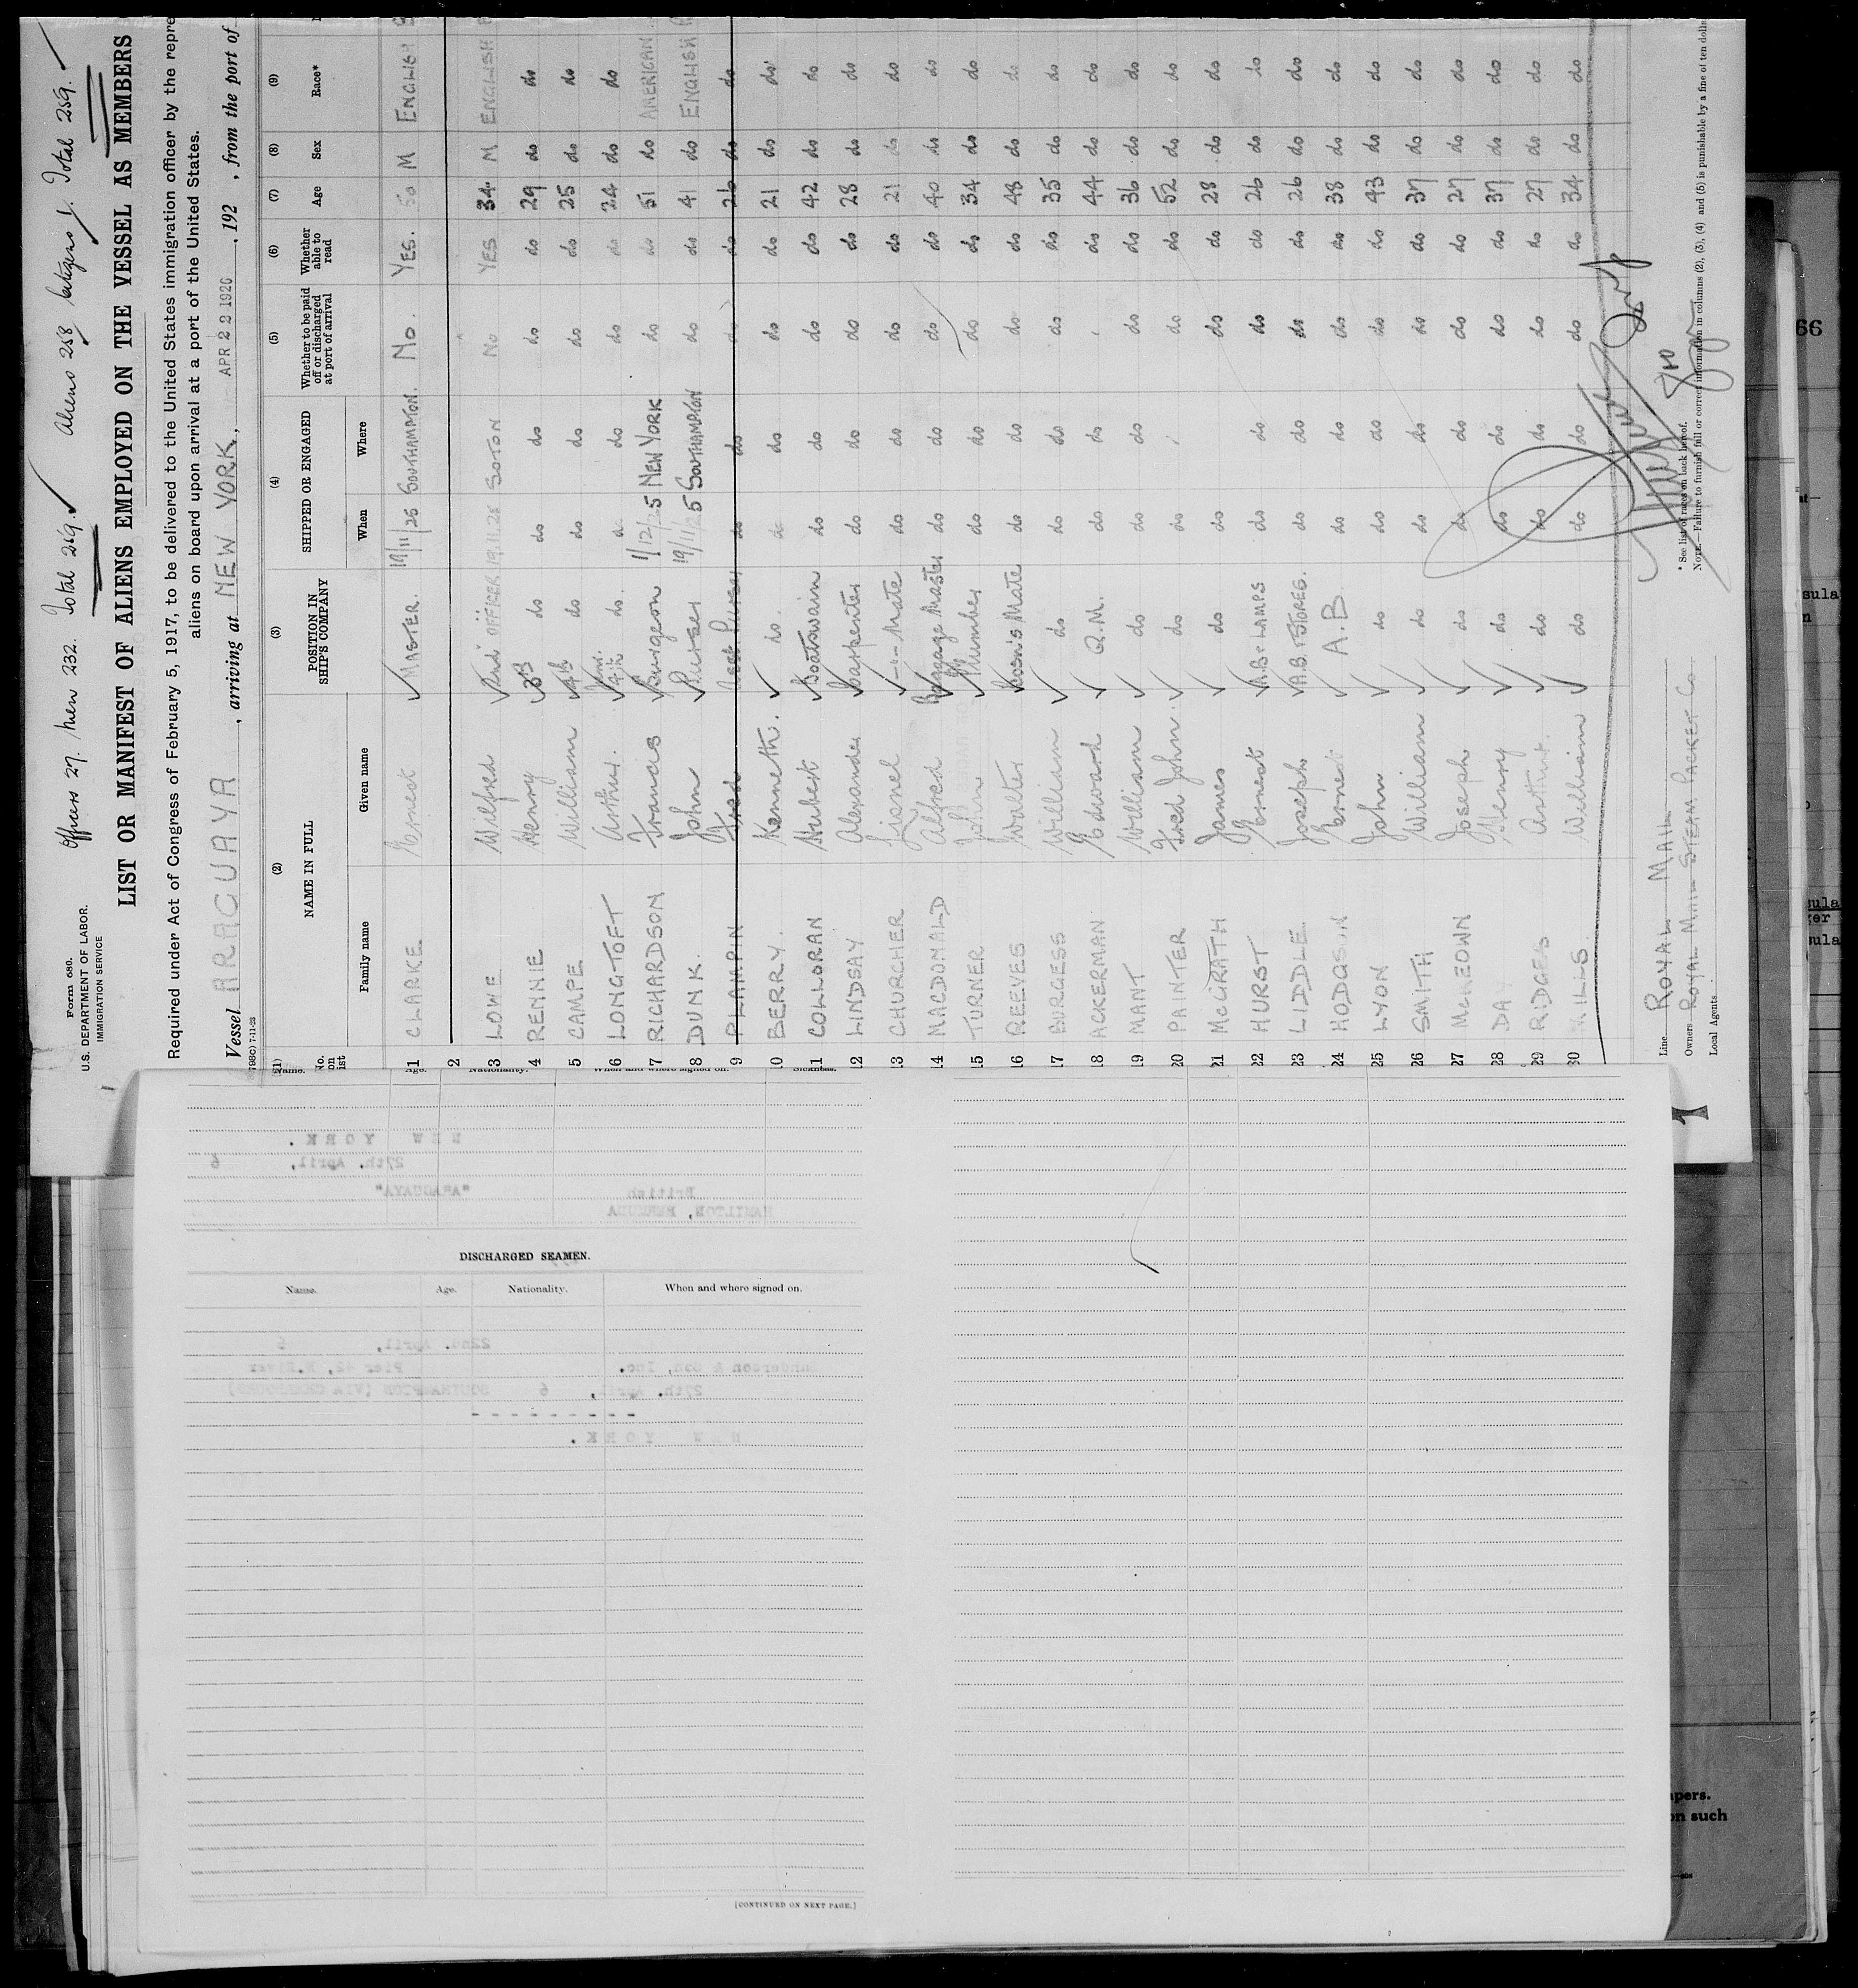 Officers 27. Men 232. Total 259. Aliens 258 Total 259.
Form 680.
U.S. DEPARTMENT OF LABOR.
IMMIGRATION SERVICE
LIST OR MANIFEST OF ALIENS EMPLOYED ON THE VESSEL AS MEMBERS
Required under Act of Congress of February 5, 1917, to be delivered to the United States immigration officer by the repre
aliens on board upon arrival at a port of the United States.
Vessel ARAGUAYA, arriving at NEW YORK, APR 22 1926, 192 , from the port of
(2) (3) (4) (5) (6) (7) (8) (9)
NAME IN FULL POSITION IN SHIP'S COMPANY SHIPPED OR ENGAGED Whether to be paid off or discharged at port of arrival Whether able to read Age Sex Race*
Family name Given name When Where
1 CLARKE Ernest MASTER. 19/11/25 SOUTHAMPTON. No. YES. 50 M ENGLISH
2
3 LOWE Wilfred 2nd OFFICER 19.11.25 SOTON No YES 34 M ENGLISH
4 RENNIE Henry 3rd do do do do do 29 do do
5 CAMPE William 4th do do do do do 25 do do
6 LONGTOFT Arthur. Jun. 4th do. do do do 24 do do
7 RICHARDSON Francis Surgeon 1/12/25 NEW YORK do do 51 do AMERICAN
8 DUNK. John Purser 19/11/25 SOUTHAMPTON do do 41 do ENGLISH
9 PLAMPIN Fred Asst. Purser do do do do 26 do do
10 BERRY. Kenneth. do. do do do do 21 do do
11 COLLORAN Herbert Boatswain do do do do 42 do do
12 LINDSAY Alexander Carpenter do do do do 28 do do
13 CHURCHER Lionel -"- Mate do do do do 21 do do
14 MACDONALD Alfred Baggage Master do do do do 40 do do
15 TURNER John Plumber do do do do 34 do do
16 REEVES Walter Bosn's Mate do do do do 48 do do
17 BURGESS William do do do do do 35 do do
18 ACKERMAN Edward Q.M. do do do 44 do do
19 MANT William do do do do do 36 do do
20 PAINTER Fred John. do do do do 52 do do
21 McGRATH James do do do do 28 do do
22 HURST Ernest A.B. & LAMPS do do do do 26 do do
23 LIDDLE Joseph A.B. & STORES. do do do do 26 do do
24 HODGSON Ernest A.B. do do do do 38 do do
25 LYON John do do do do do 43 do do
26 SMITH William do do do do do 37 do do
27 McKEOWN Joseph do do do do do 27 do do
28 DAY Henry do do do do do 37 do do
29 RIDGES Arthur. do do do do do 27 do do
30 MILLS. William do do do do do 34 do do
Line ROYAL MAIL
Owners ROYAL MAIL STEAM PACKET Co
Local Agents
* See list of races on back hereof.
NOTE.—Failure to furnish full or correct information in columns (2), (3), (4) and (5) is punishable by a fine of ten dolla
1
Name. Age. Nationality. When and where signed on. Sickness.
NEW YORK.
27th. April, 6
"ARAGUAYA" British
HAMILTON, BERMUDA
DISCHARGED SEAMEN.
Name. Age. Nationality. When and where signed on.
22nd. April, 6
Sanderson & Son, Inc. Pier 42, N.River
27th. April, 6 SOUTHAMPTON (VIA CHERBOURG)
- - - - - - - - -
NEW YORK.
[CONTINUED ON NEXT PAGE.]
66
sula
sula
er
sula
apers.
on such